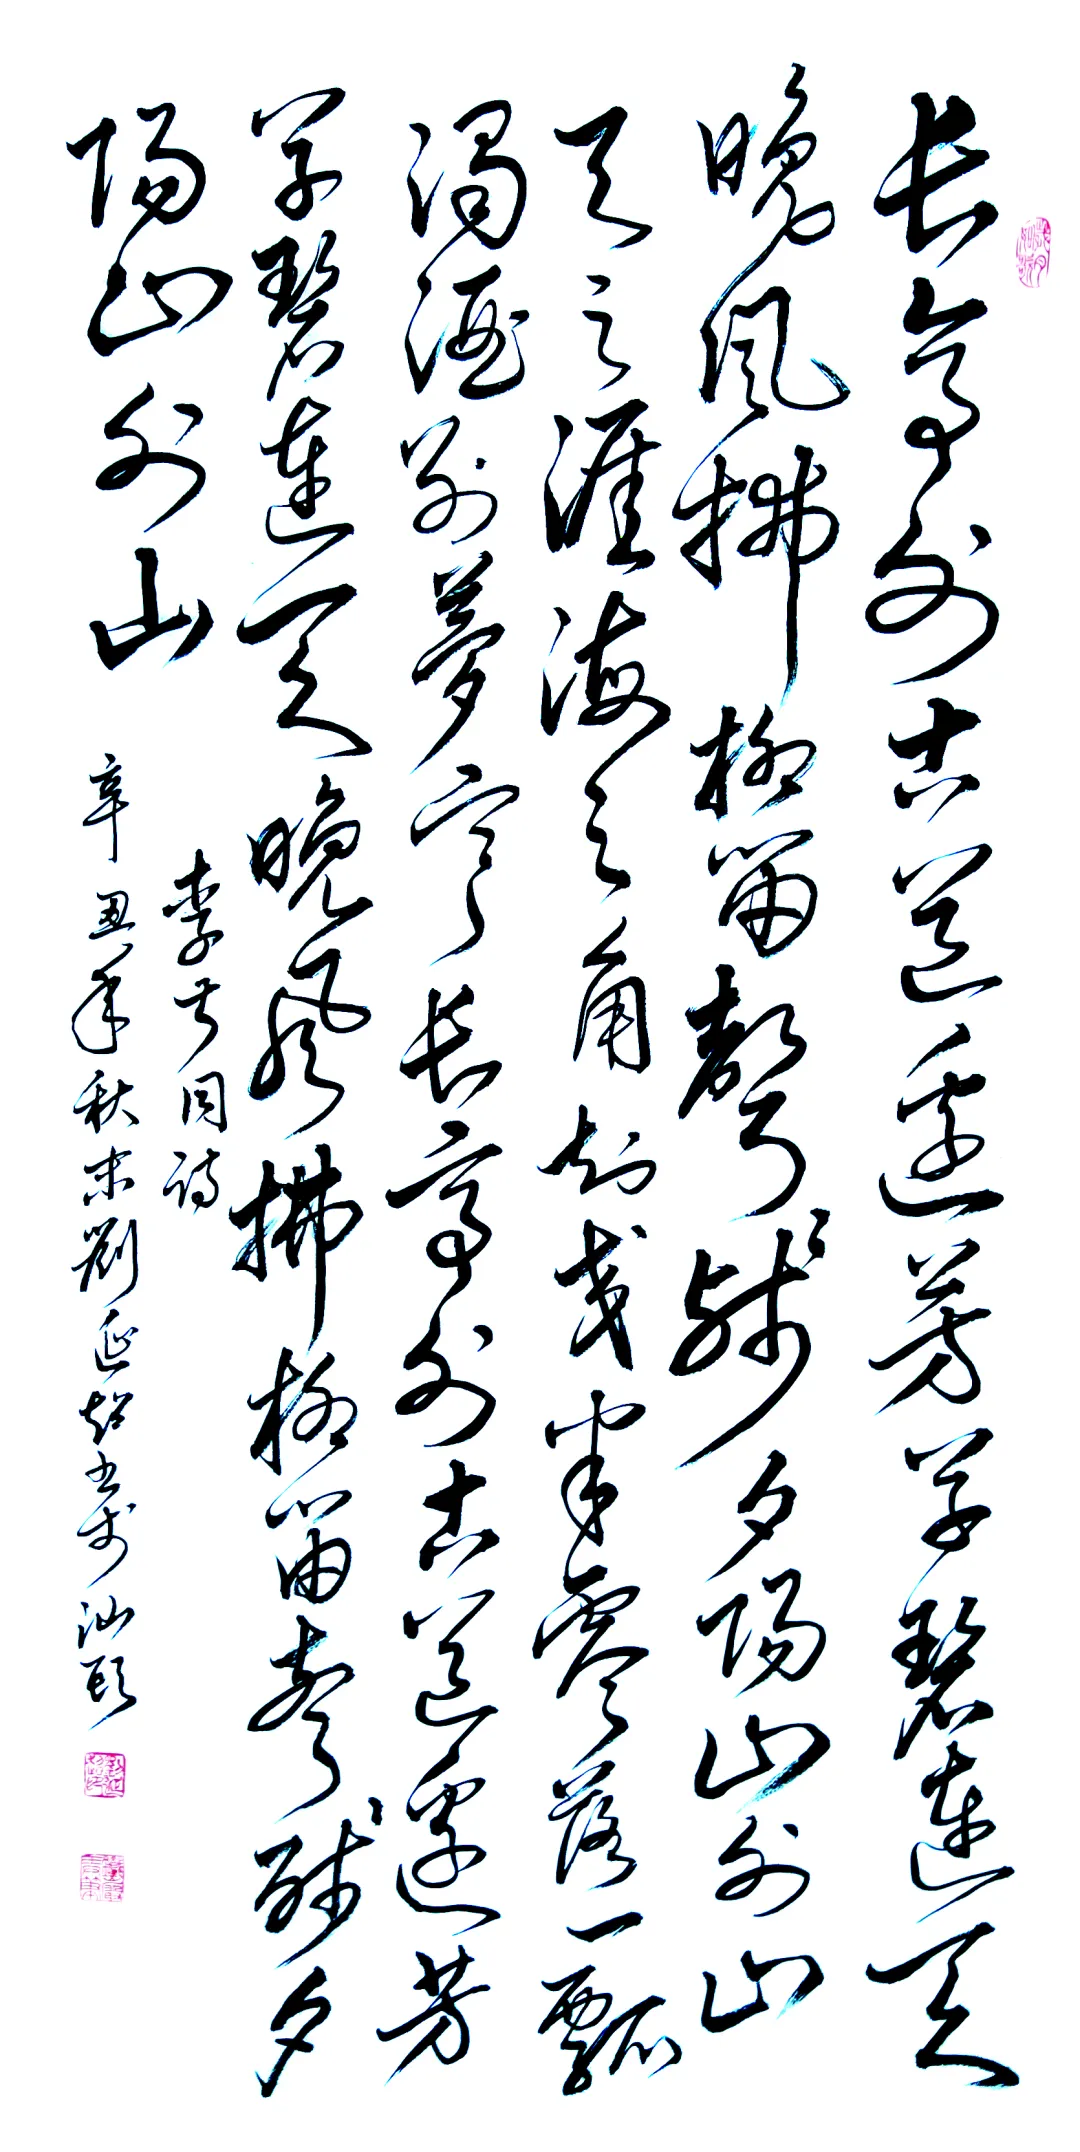 长亭外古道边芳草碧连天
晚风拂柳笛声残夕阳山外山
天之涯海之角知交半零落一瓢
浊酒尽馀欢今宵别梦寒长亭外古道边芳
草碧连天晚风拂柳笛声残夕
阳山外山
李叔同诗
辛丑年秋末刘延超书于汕頭